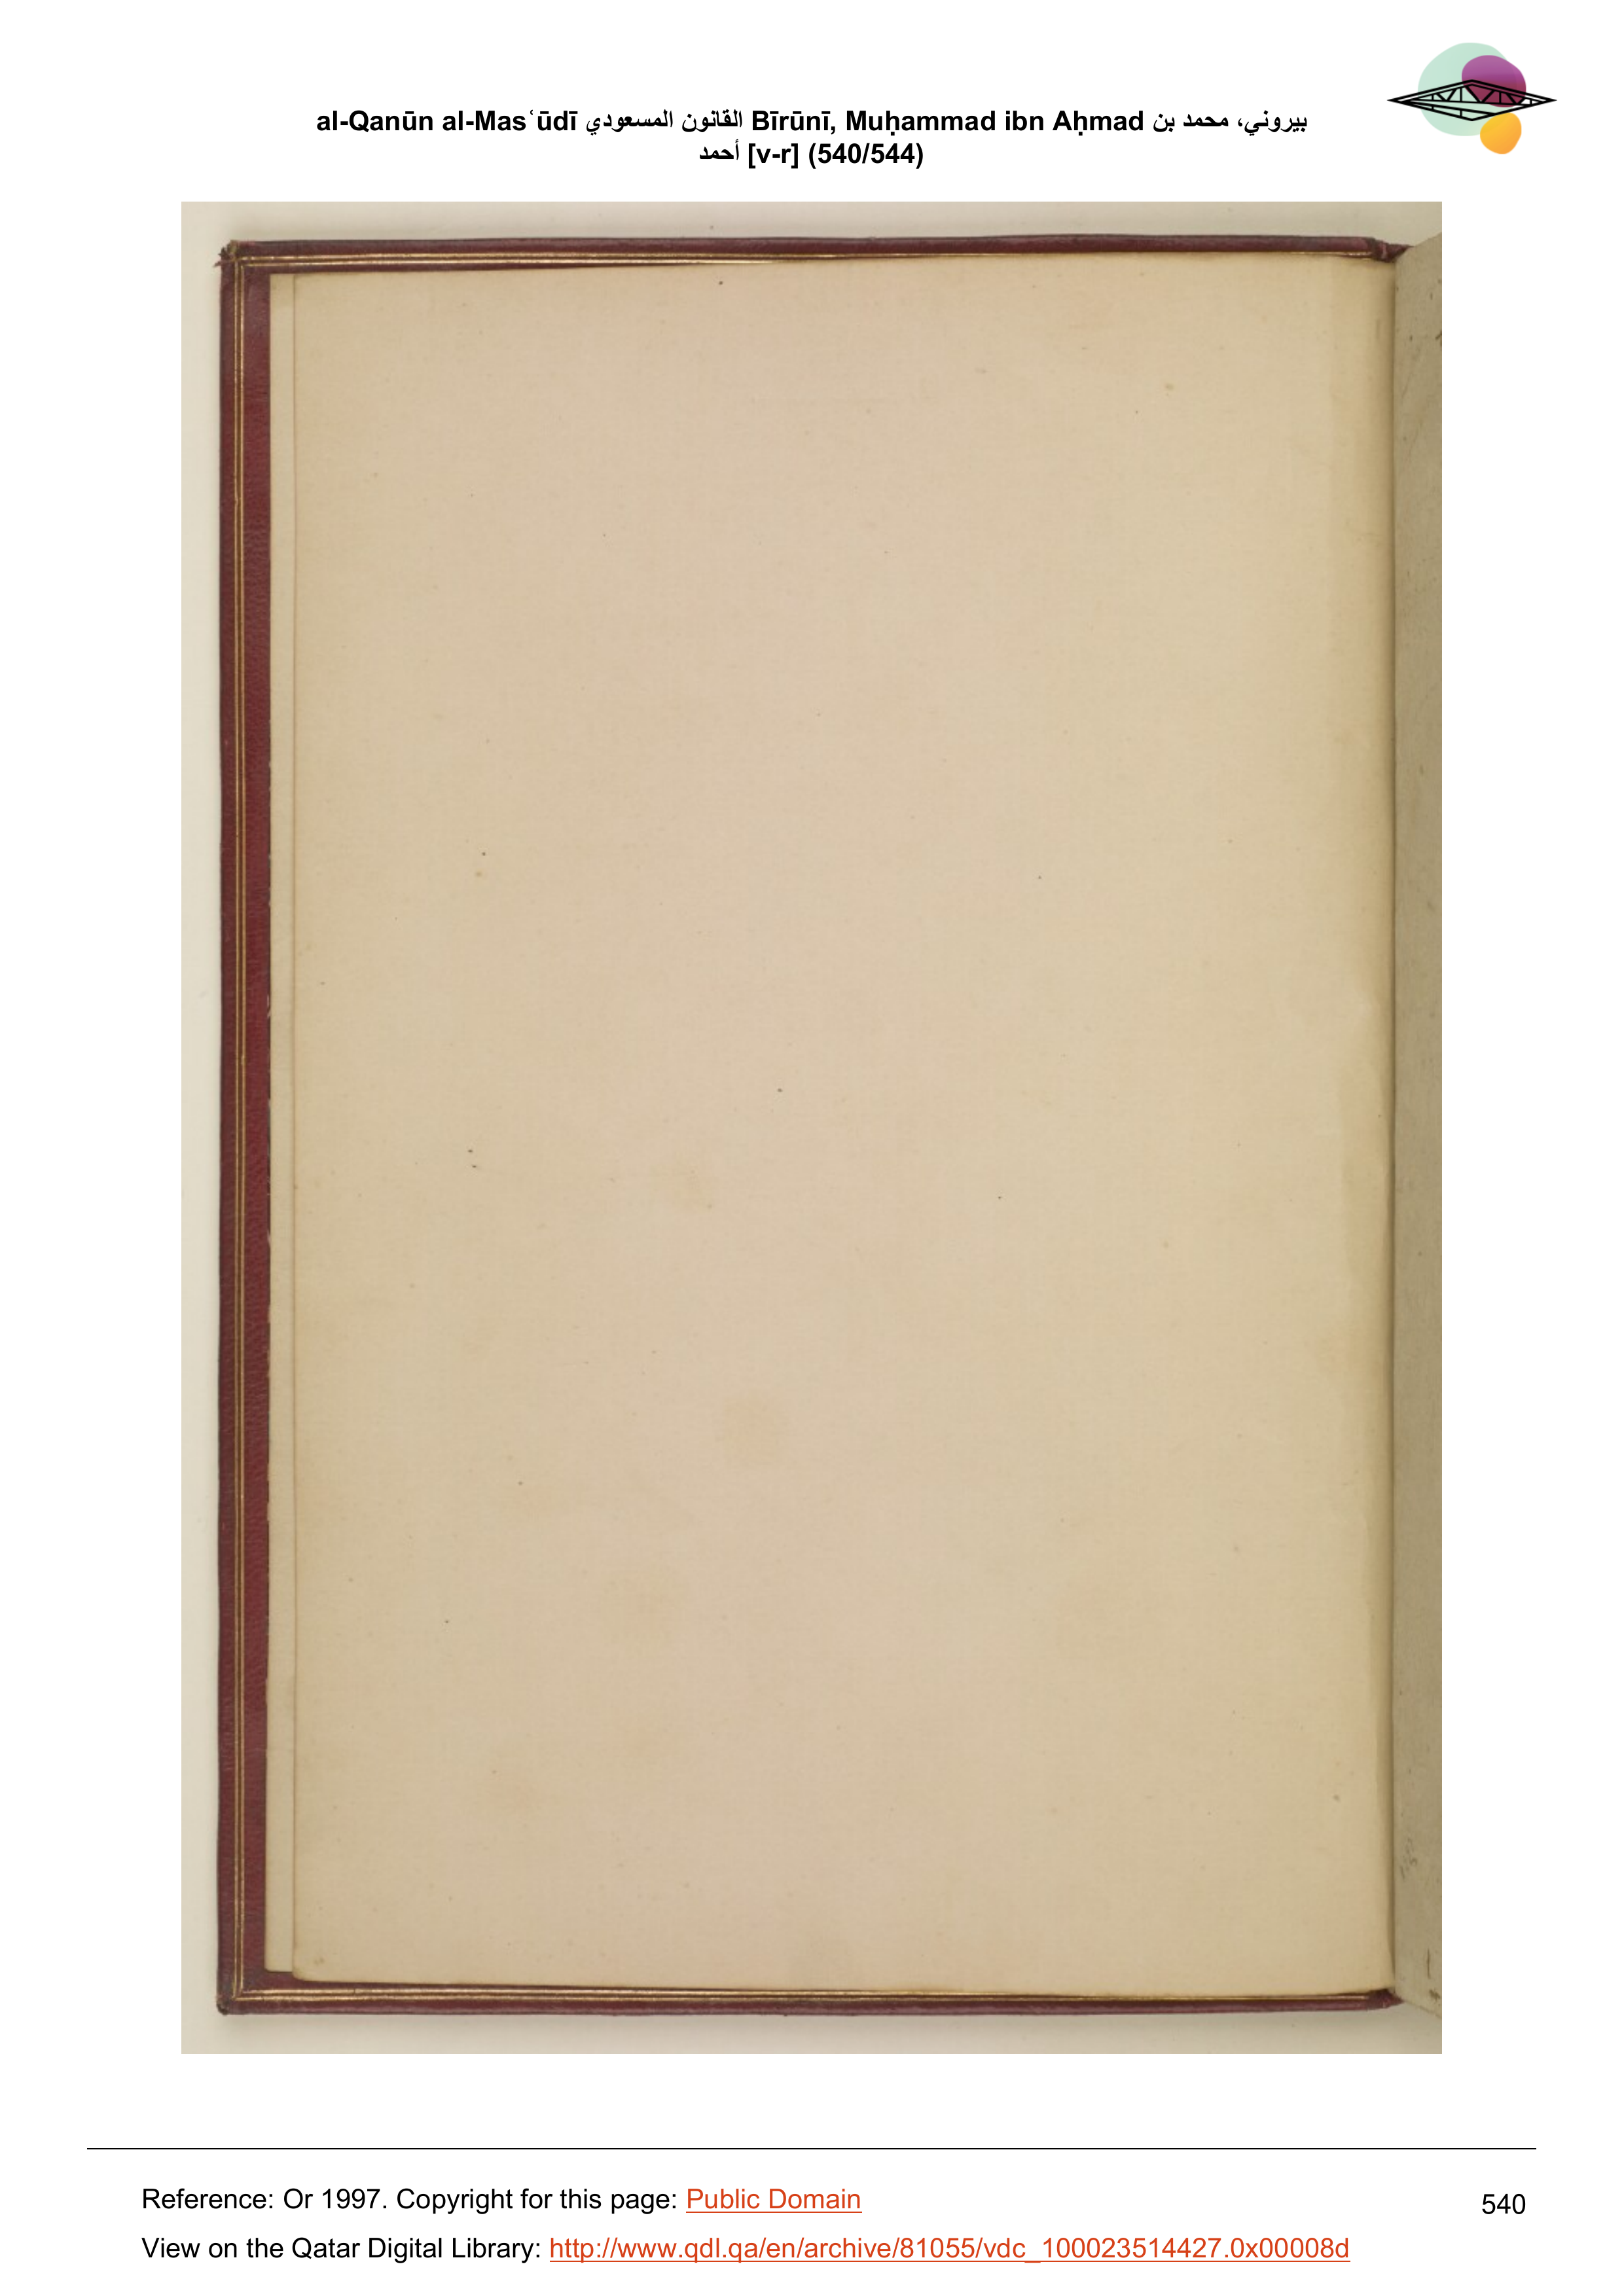 al-Qanūn al-Masʿūdī القانون المسعودي Bīrūnī, Muḥammad ibn Aḥmad بيروني، محمد بن
أحمد [v-r] (540/544)
Reference: Or 1997. Copyright for this page: Public Domain
540
View on the Qatar Digital Library: http://www.qdl.qa/en/archive/81055/vdc_100023514427.0x00008d